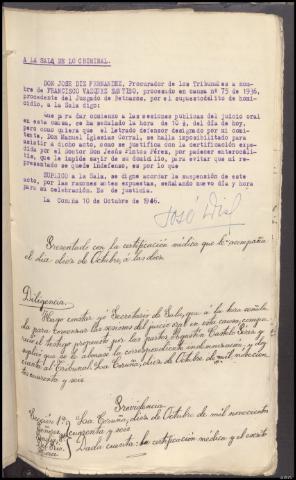 A LA SALA DE LO CRIMINAL.
DON JOSE DIZ FERNANDEZ, Procurador de los Tribunales a nom-
bre de FRANCISCO VAZQUEZ SANTISO, procesado en causa nº 75 de 1936,
procedente del Juzgado de Betanzos, por el supuesto delito de homi-
cidio, a la Sala digo:
que para dar comienzo a las sesiones públicas del juicio oral
en esta causa, se ha señalado la hora de 10 ½, del día de hoy,
pero como quiera que el letrado defensor designado por mi comi-
tente, Don Manuel Iglesias Corral, se halla imposibilitado para
asistir a dicho acto, como se justifica con la certificación expe-
dida por el Doctor Don Jesús Pintos Pérez, por padecer enterocóli-
tis, que le impide salir de su domicilio, para evitar que mi re-
presentado se quede indefenso, es por lo que
SUPLICO a la Sala, se digne acordar la suspensión de este
acto, por las razones antes expuestas, señalando nuevo día y hora
para su celebración. Es de justicia.
La Coruña 10 de Octubre de 1946.
José Diz
Presentado con la certificación médica que le acompaña
el día diez de Octubre, á las diez
Diligencia
Hago constar yó Secretario de Sala, que á la hora señala-
da para comenzar las sesiones del juicio oral en esta causa, compa-
reció el testigo propuesto por las partes Agustín
suplico que se le abonase la correspondiente indemnización, y doy
cuenta al Tribunal. La Coruña, diez de Octubre de mil novecien-
tos cuarenta y seis
Providencia
Sección 1ª La Coruña, diez de Octubre de mil novecientos
Señores cuarenta y seis
del Río Dada cuenta: la certificación médica y el escrito